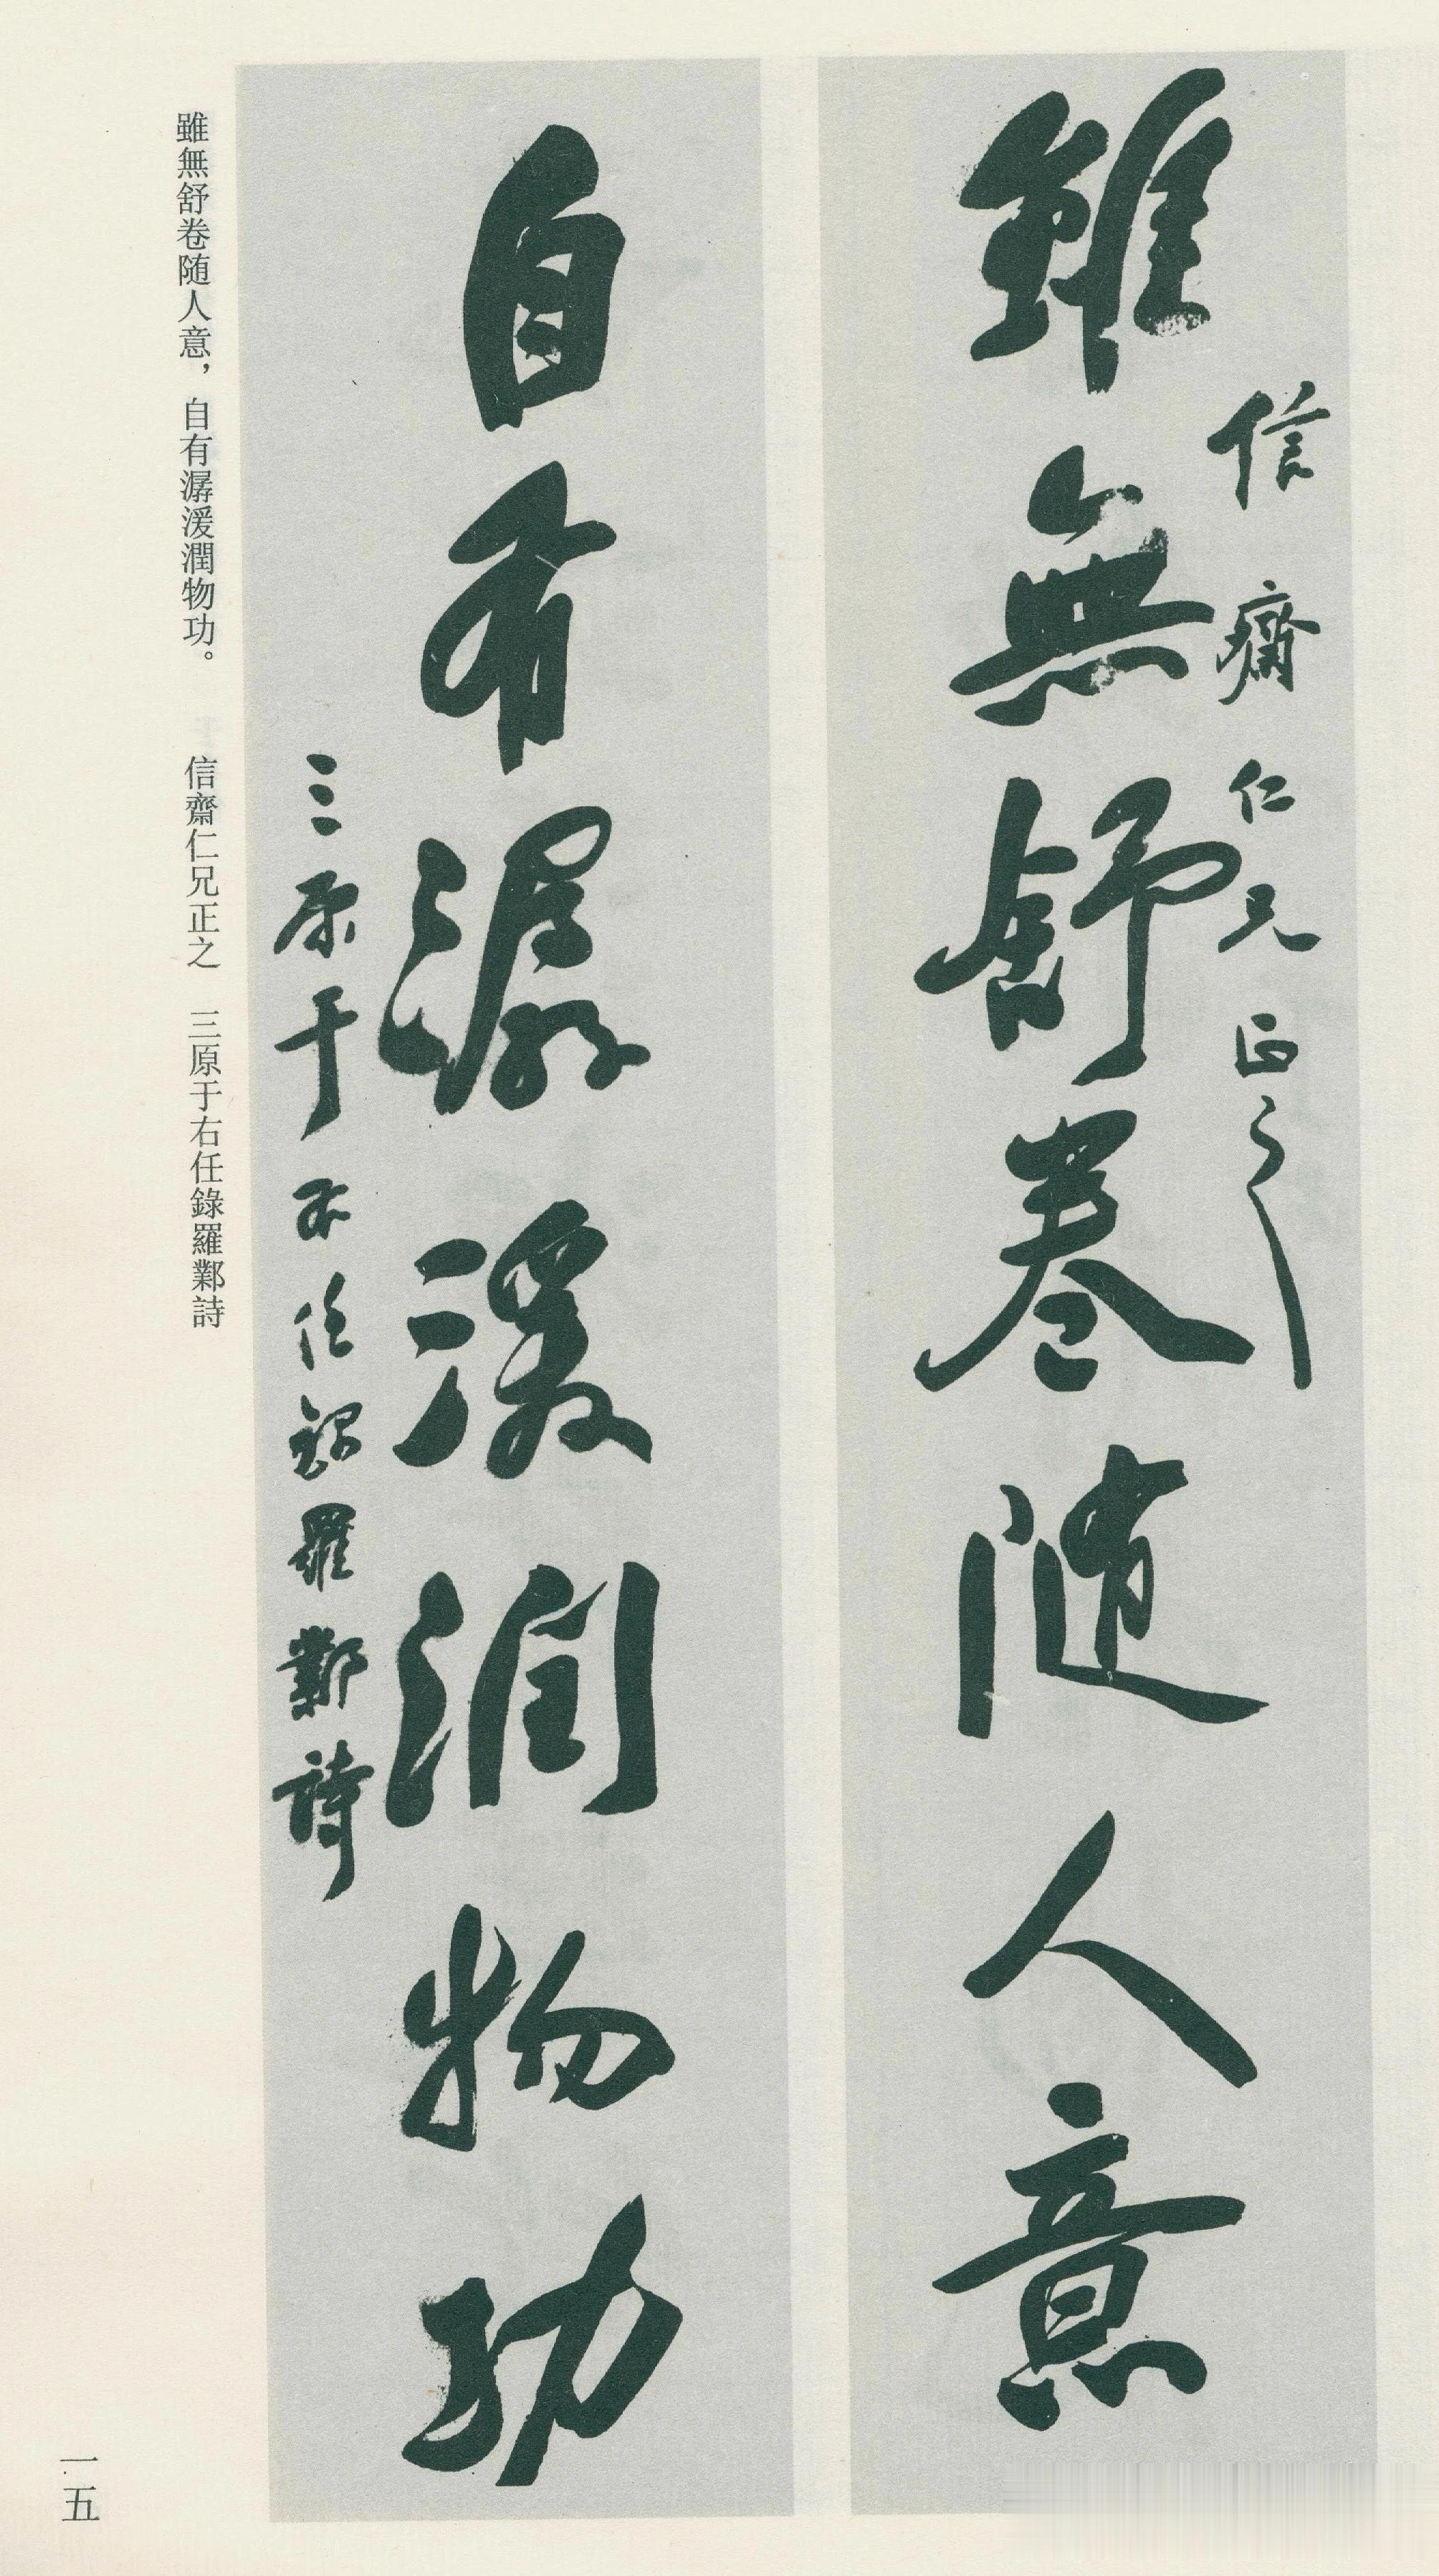 信齋仁兄正之
雖無舒卷随人意
自有潺湲潤物功
三原于右任録羅鄴詩
雖無舒卷随人意，自有潺湲潤物功。 信齋仁兄正之 三原于右任錄羅鄴詩
一五